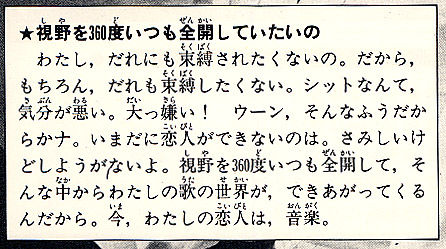 ★視野を360度いつも全開していたいの
わたし，だれにも束縛されたくないの。だから，
もちろん，だれも束縛したくない。シットなんて，
気分が悪い。大っ嫌い！　ウーン，そんなふうだか
らかナ。いまだに恋人ができないのは。さみしいけ
どしようがないよ。視野を360度いつも全開して，そ
んな中からわたしの歌の世界が，できあがってくる
んだから。今，わたしの恋人は，音楽。